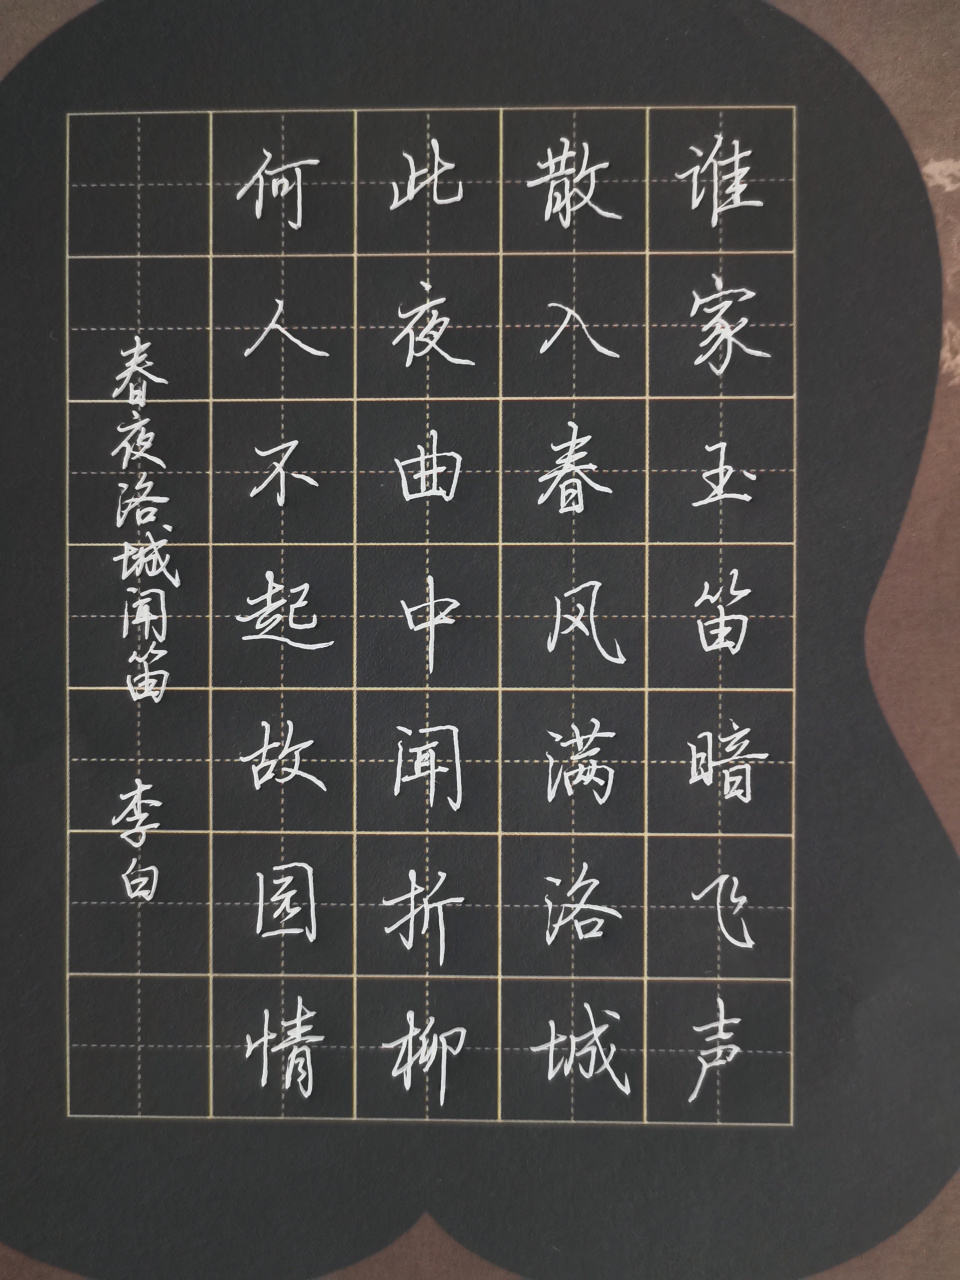 谁家玉笛暗飞声
散入春风满洛城
此夜曲中闻折柳
何人不起故园情
春夜洛城闻笛 李白